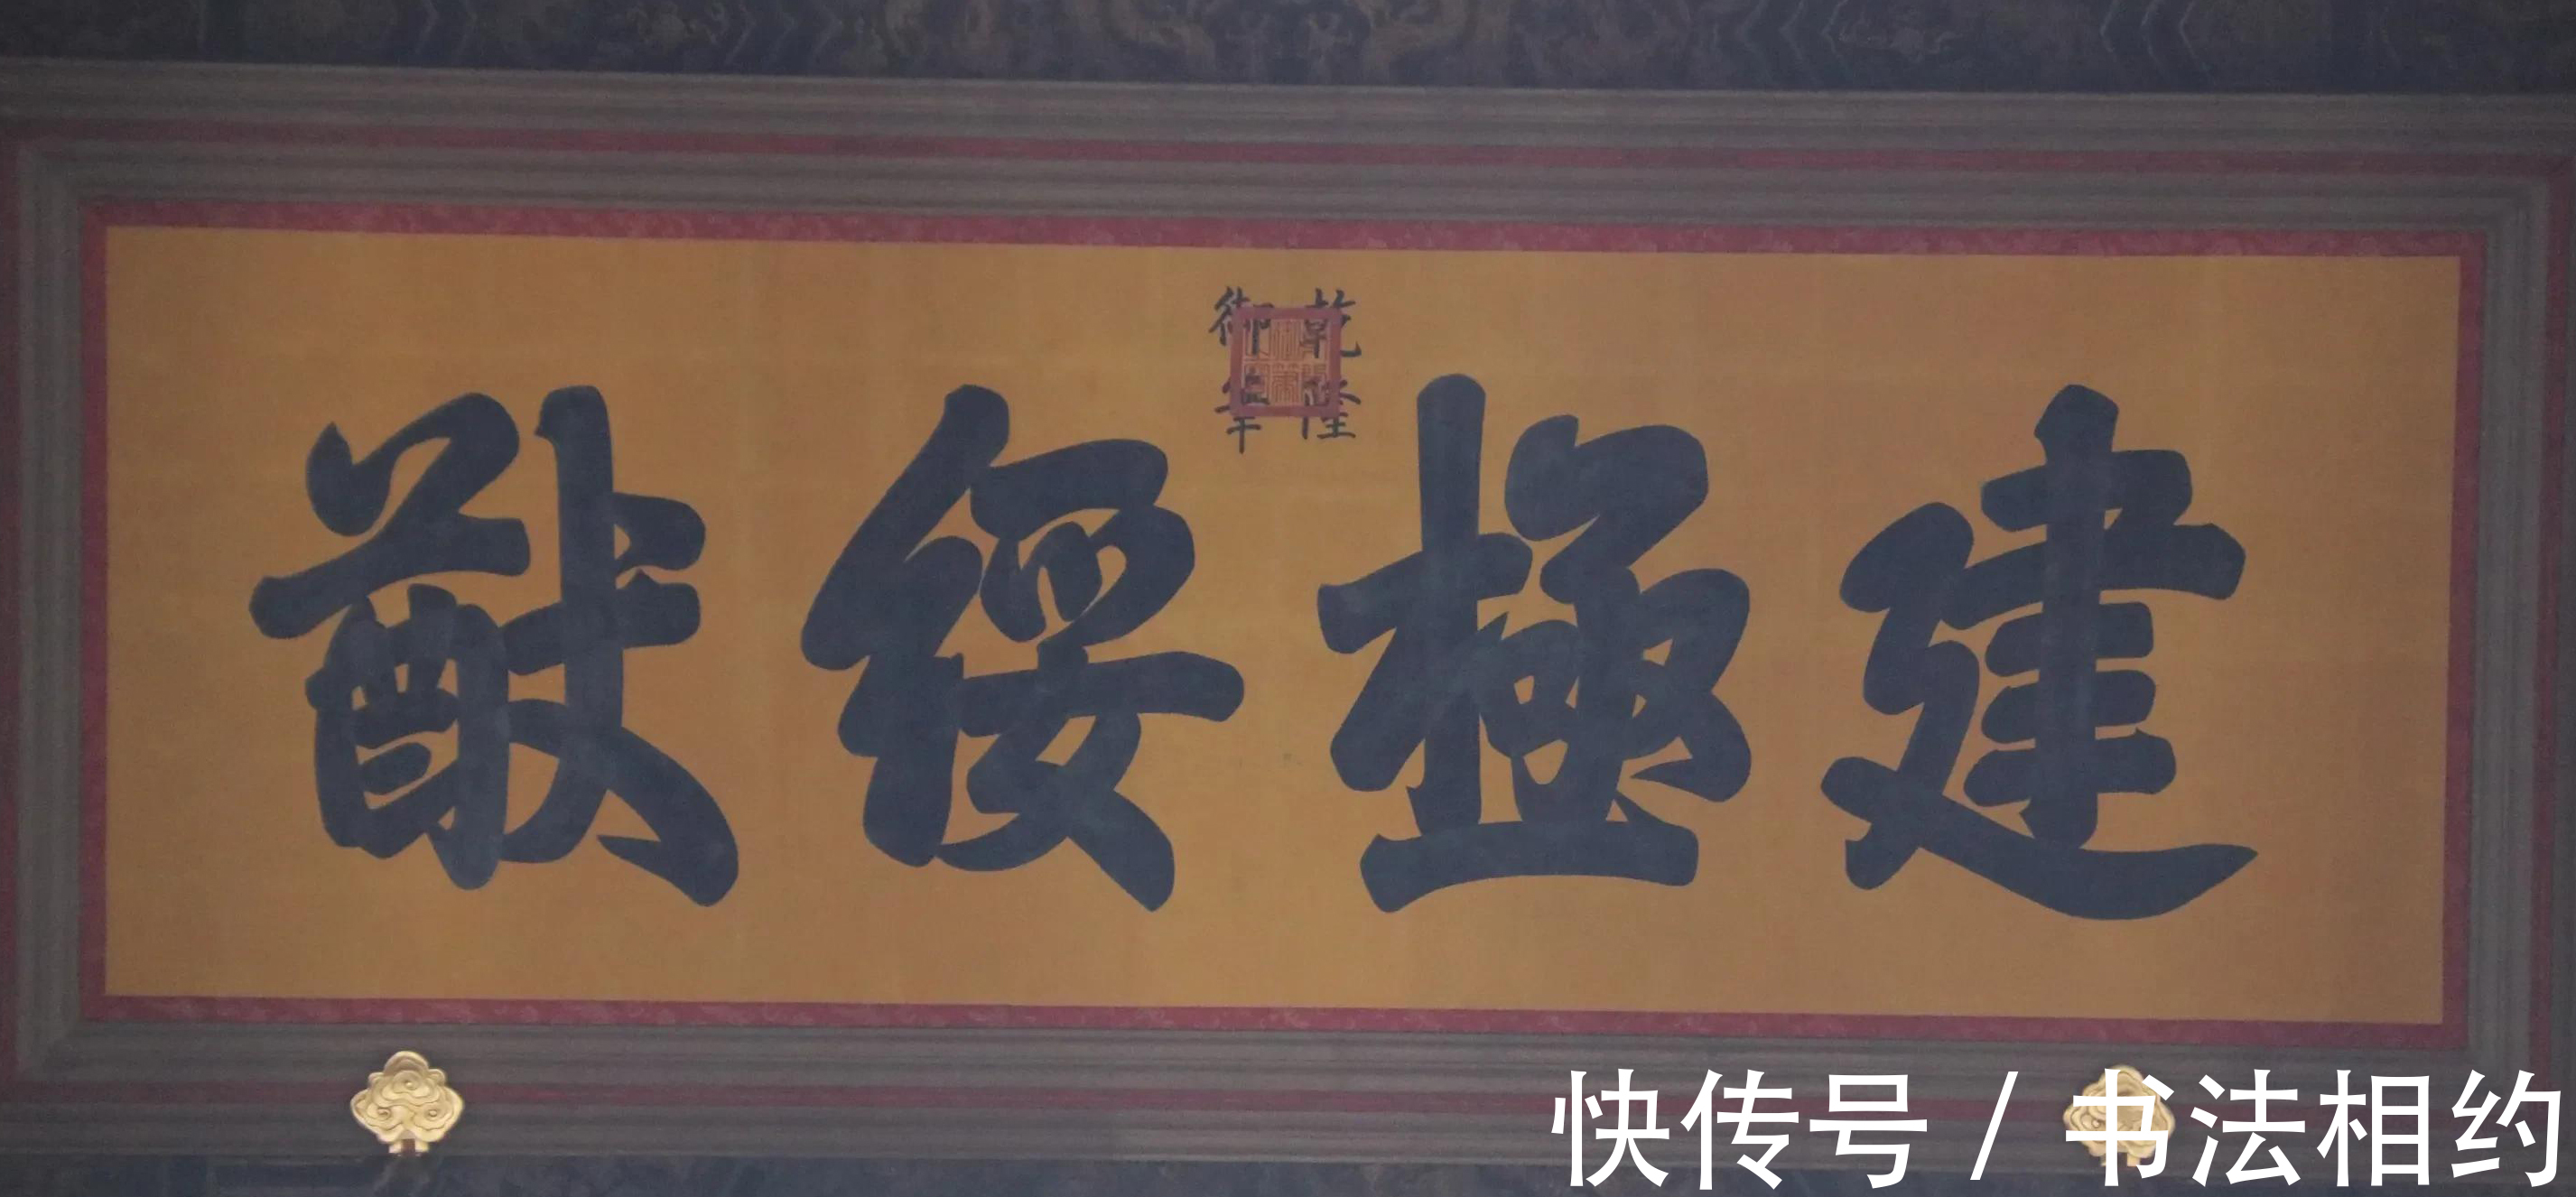 建極綏猷
乾隆
御筆
快传号 / 书法相约